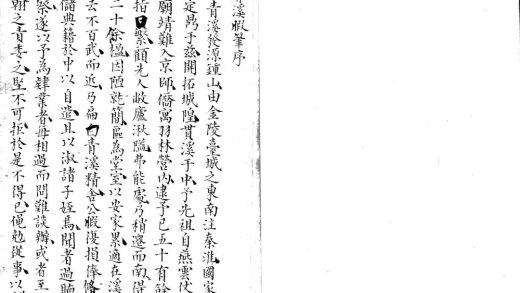 溪暇筆序
青溪發源鍾山由金陵臺城之東南注秦淮國家
定鼎于茲開拓城隍貫溪于中予先祖自燕雲仗
廟靖難入京師僑寓羽林營内逮予已五十有餘
指日繁顧先人敝廬湫隘弗能處乃稍遷而南得
二十餘楹因陋就簡區為堂室以安家累適在溪
去不百武而近乃扁曰青溪精舍公暇復損俸
儲典籍於中以自遣且以淑諸子姪焉聞者過聽
祭遂以予為肄業者每相過而問難談辦或者至
朝之責委之堅不可拒於是不得已僶勉從事以